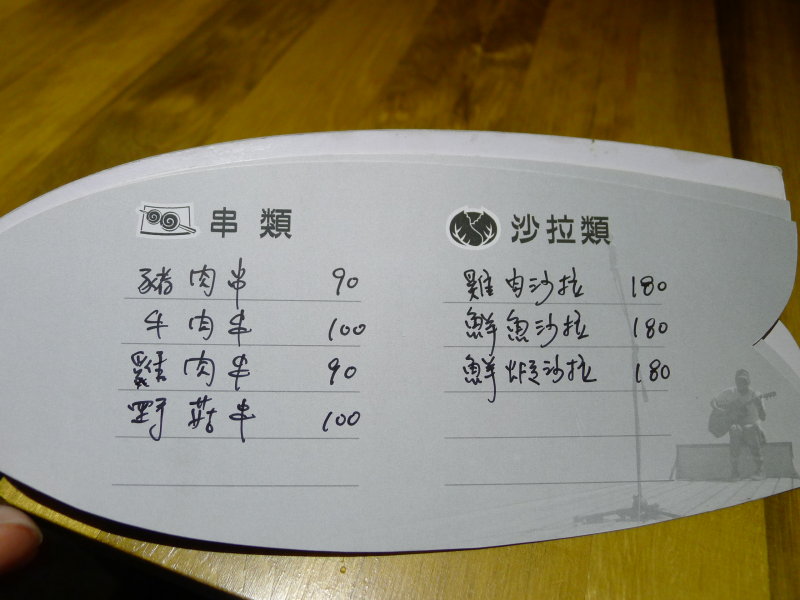 串類
豬肉串 90
牛肉串 100
雞肉串 90
野菇串 100
沙拉類
雞肉沙拉 180
鮮魚沙拉 180
鮮蝦沙拉 180